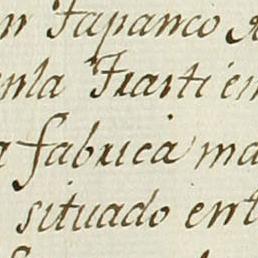 n Tapanco
enla Trasti en
a fabrica ma
situado ent